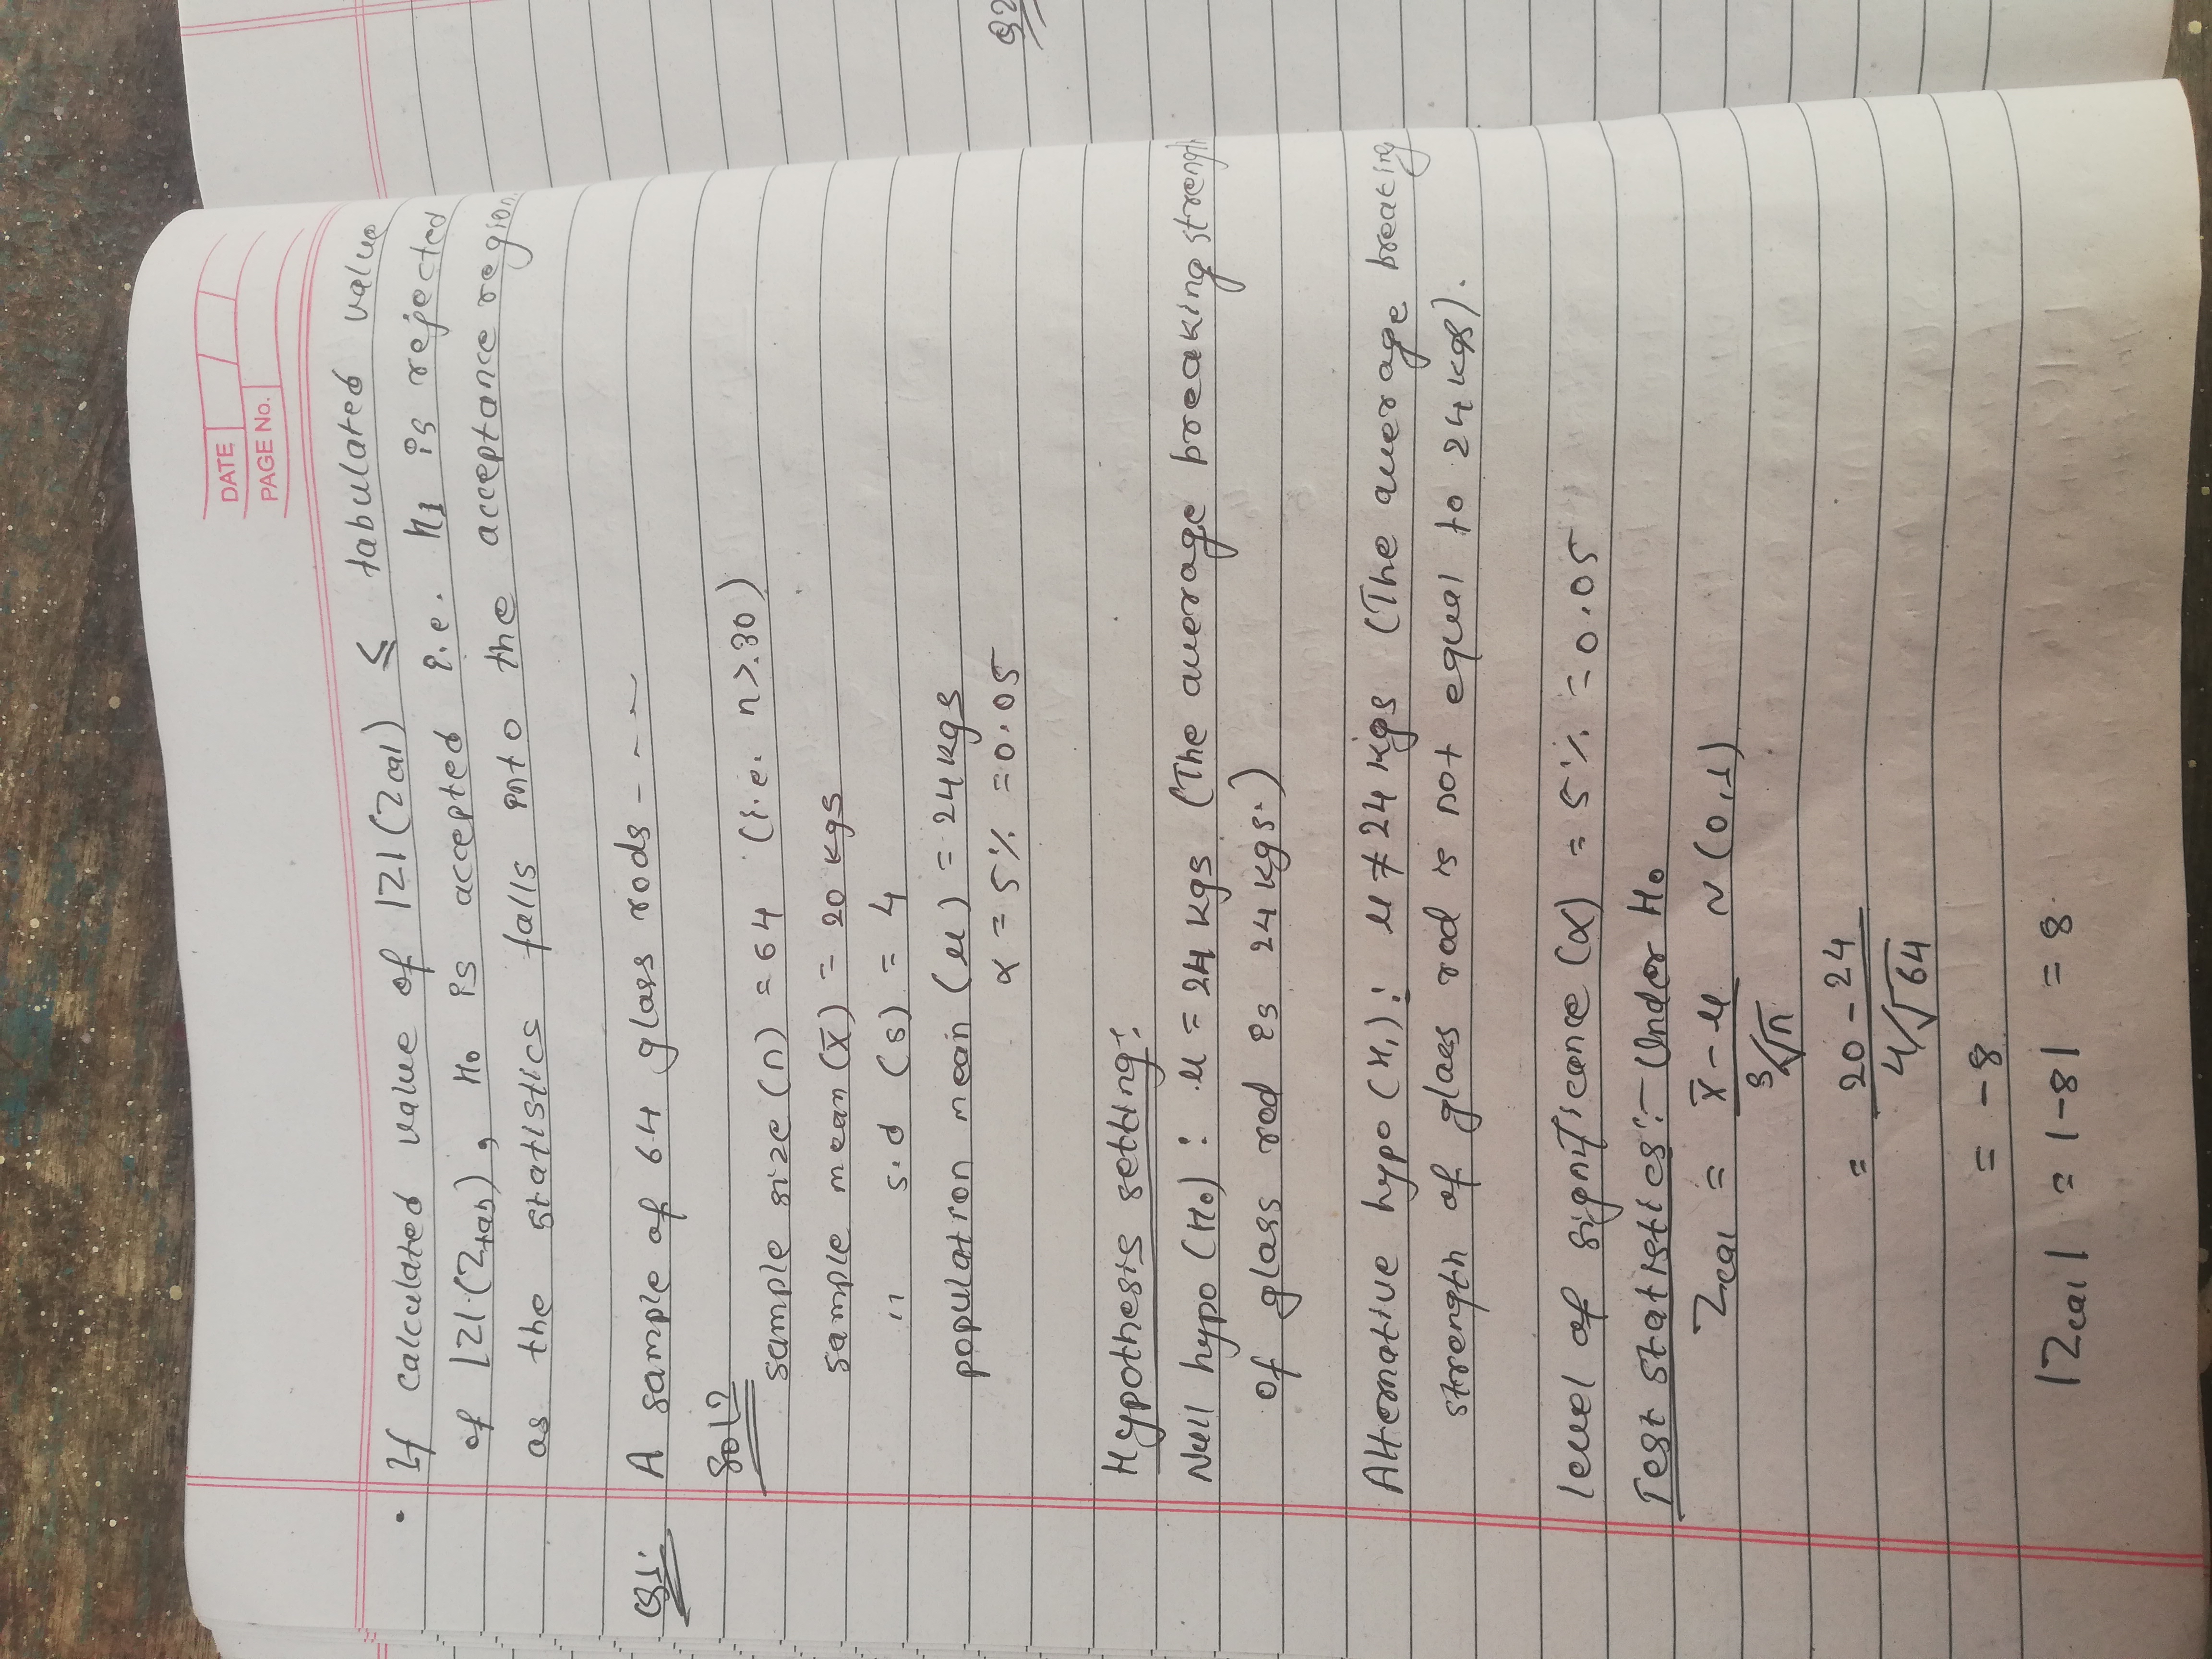 DATE
PAGE No.
• If calculated value of |Z| (Zcal) ≤ tabulated value
of |Z| (Ztab), H₀ is accepted i.e. H1 is rejected
as the statistics falls into the acceptance region.
Q1. A sample of 64 glass rods - - - -
Solⁿ
sample size (n) = 64 (i.e. n > 30)
sample mean (x̄) = 20 kgs
" s.d (s) = 4
population mean (μ) = 24 kgs
α = 5% = 0.05
Q2
Hypothesis setting:
Null hypo (H₀) : μ = 24 kgs (The average breaking strength
of glass rod is 24 kgs.)
Alternative hypo (H₁) : μ ≠ 24 kgs (The average breaking
strength of glass rod is not equal to 24 kgs).
level of significance (α) = 5% = 0.05
Test statistics:- Under H₀
Zcal = x̄ - μ ~ (0,1)
s/√n
= 20 - 24
4/√64
= -8
|Zcal| = |-8| = 8